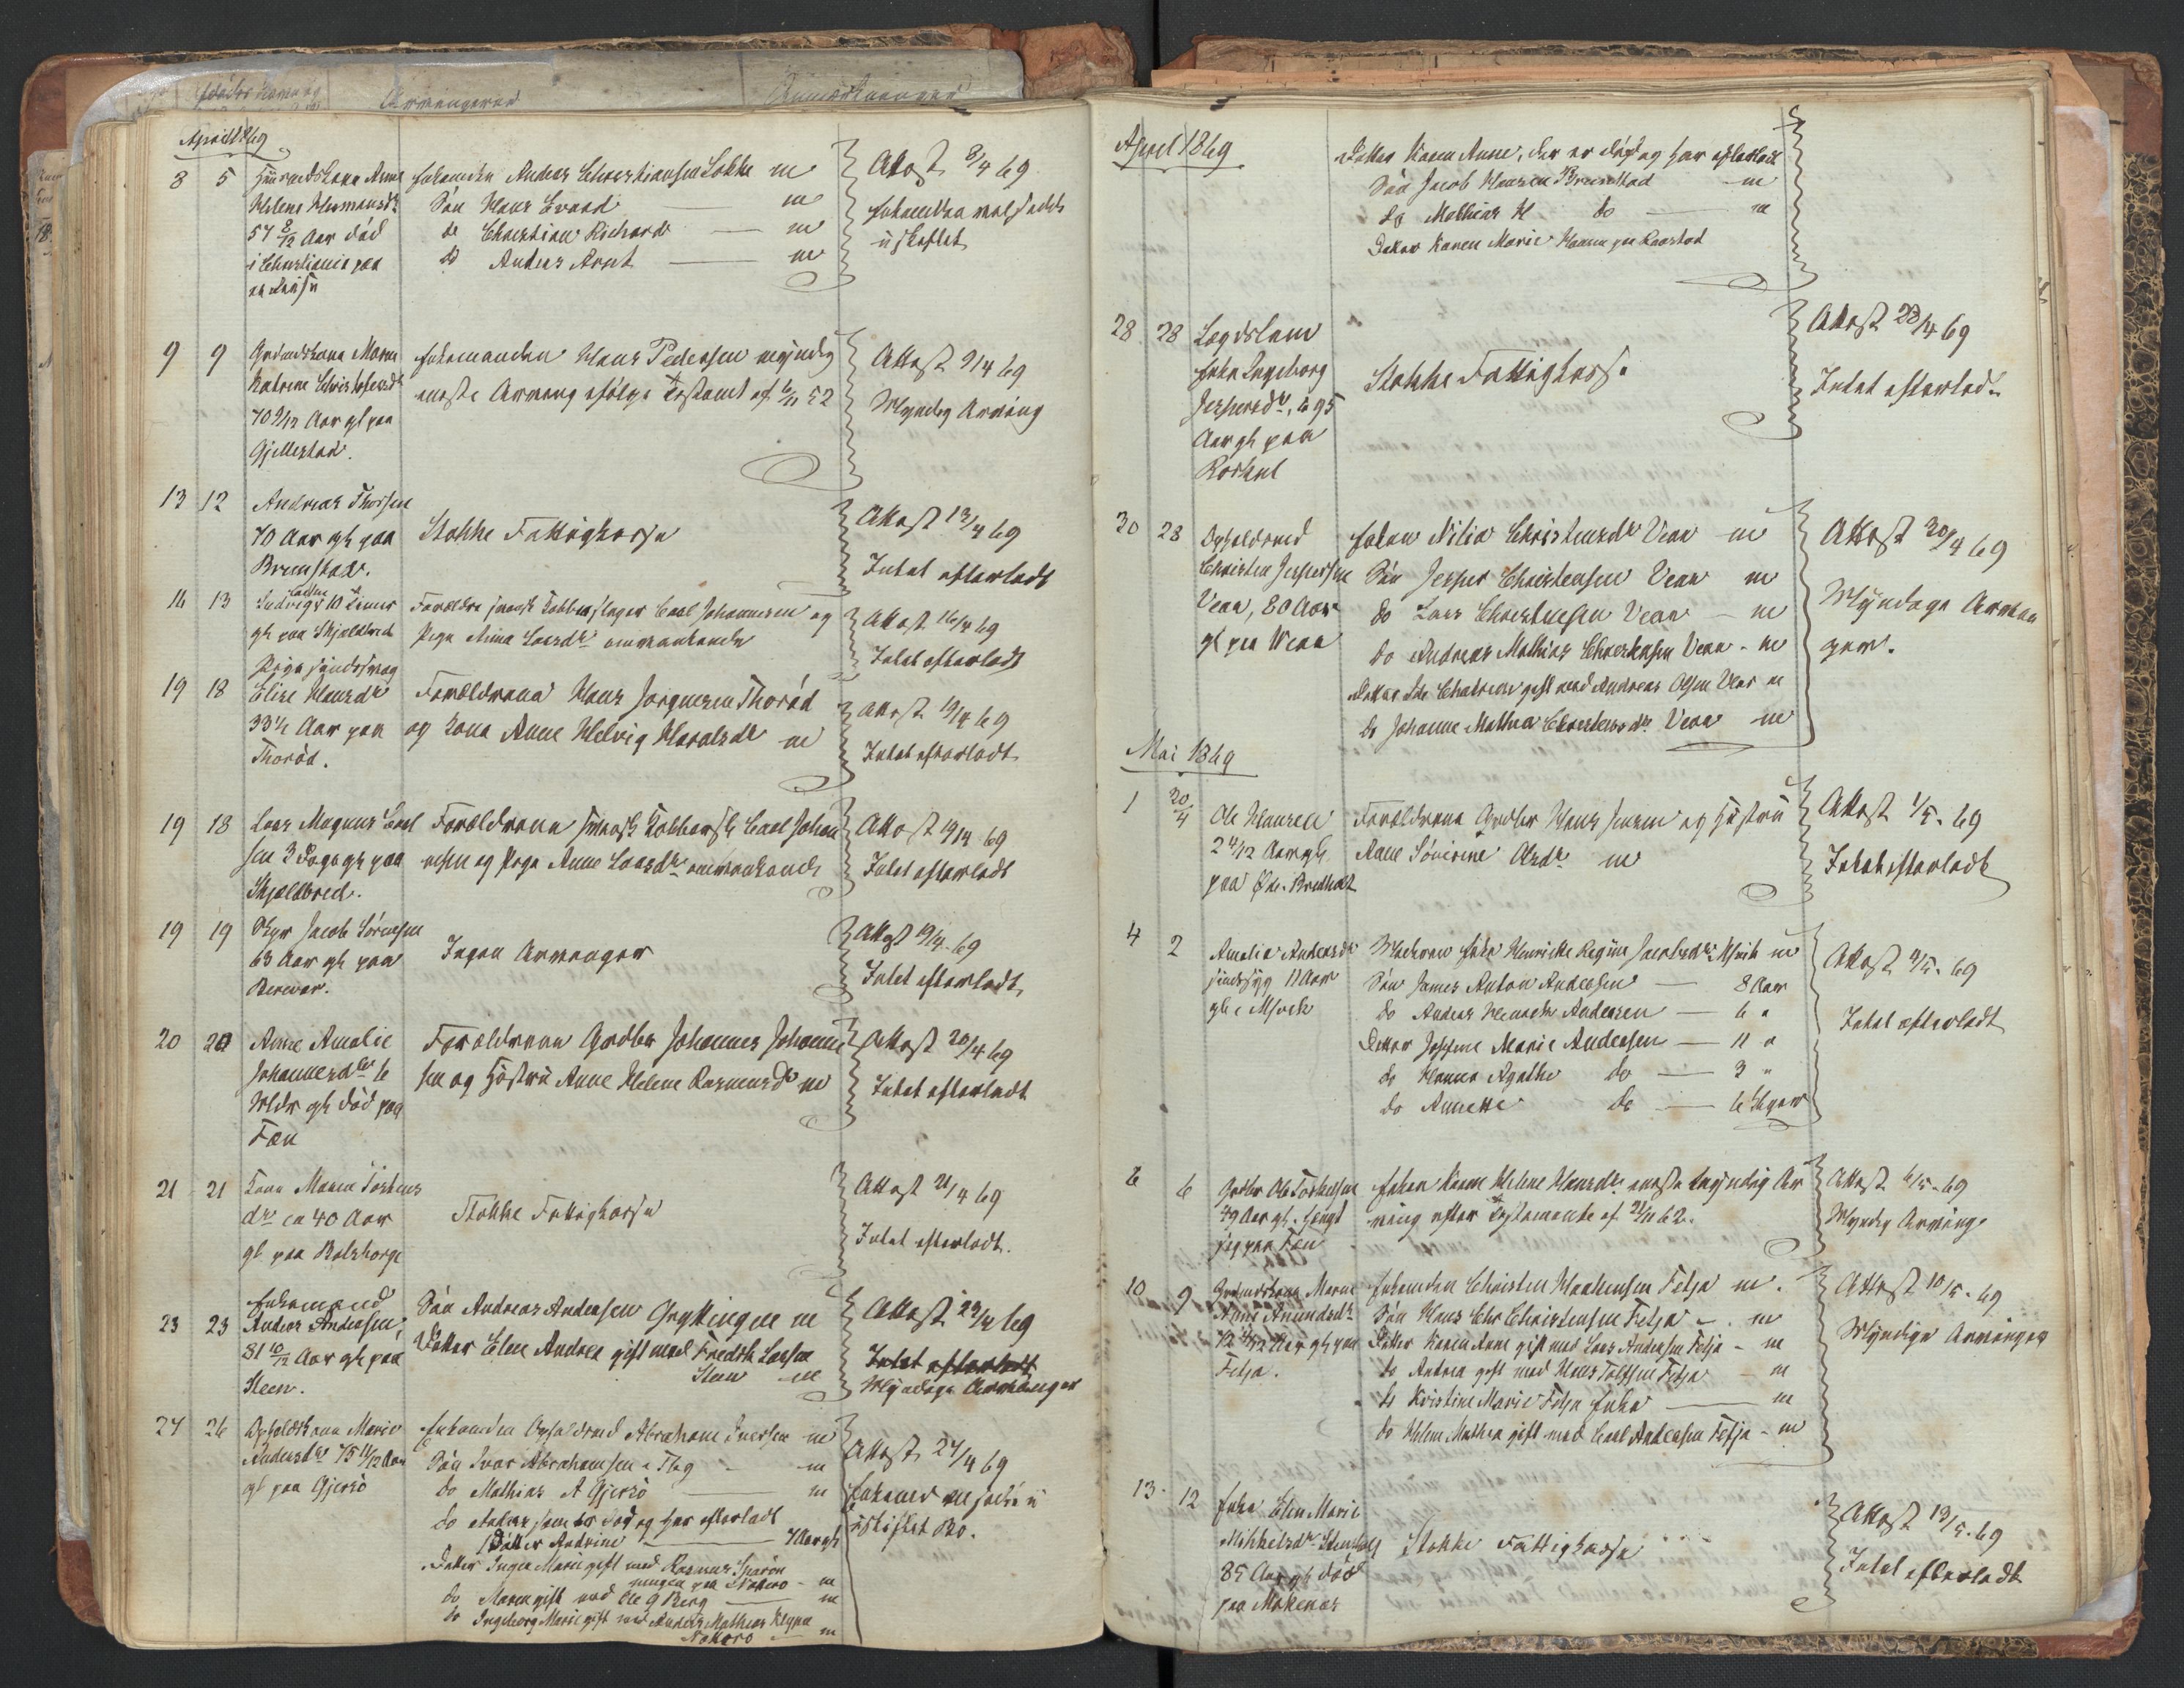 April 1869
8 5 Huusmandskone Anne
Helene Hermansdr
57 8/12 Aar död
i Christiania paa
Enkemanden Anders Christiansen Løkke m
Søn Hans Evard — m
do Christian Richard — m
do Anders Arnt — m
Attest 8/4 69
i uskiftet
9 9 Maren
Katrine Christofersdr
70 9/12 Aar gl paa
Gjellestad.
Enkemanden Hans Pedersen myndig
eneste Arving ifölge Testamt af 6/11 52
Attest 9/4 69
Myndig Arving
13 12 Andreas Thorsen
70 Aar gl paa
Brunstad.
Stokke Fattigkasse
Attest 13/4 69
Intet efterladt
16 13
gl paa Skjeldbred
Forældre svensk Kobberslager Carl Johannesen og
Pige Anna Larsdr omvankende
Attest 16/4 69
Intet efterladt
19 18 Elise Hansdr
33 1/2 Aar paa
Thoröd.
Forældrene Hans Jørgensen Thoröd
og Kone Anne Helvig Haralsdr m
Attest 19/4 69
Intet efterladt
19 18 Lars Magnus Carl
sen 3 Dage gl paa
Skjeldbred.
Forældrene svensk Kobbersl. Carl Johan
nesen og Pige Anne Larsdr omvankende
Attest 19/4 69
Intet efterladt
19 19 Jacob Sörensen
63 Aar gl paa
Ingen Arvinger
Attest 19/4 69
Intet efterladt
20 20 Anne Amalie
Johannesdtr 6
Mdr gl död paa
Fæn
Forældrene Grdbr Johannes Johanne
sen og Hüstrü Anne Helene Rasmusdr m
Attest 20/4 69
Intet efterladt
21 21 Kone Maren Torstens
dr ca 40 Aar
gl paa Bolshorge
Stokke Fattigkasse
Attest 21/4 69
Intet efterladt.
23 23 Enkemand
Anders Andersen,
81 10/12 Aar gl paa
Steen.
Søn Andreas Andersen Gryttingen m
Datter Elen Andrea gift med Fredrik Larsen
Steen m
Attest 23/4 69
Intet efterladt
Myndige Arvinger
27 26 Opholdskone Marie
Andersdr 75 11/12 Aar
gl paa Gjersö
Enkemanden Opholdsmd Abraham Iversen m
Søn Ivar Abrahamsen m
do Mathias A Gjersö — m
do Anders som er död og har efterladt
Datter Andrine — 7 Aar gl
Datter Inger Marie gift med Rasmus
paa Nøttero — m
do Maren gift med Ole G Berg — m
do Ingeborg Marie gift med Anders Mathias
Nøttero — m
Attest 27/4 69
uskiftet Bo.
April 1869
Datter Karen Anne, der er död og har efterladt
Søn Jacob Hansen Brunstad — m
do Mathias H do — m
Datter Karen Marie Hansen paa Raastad
28 28 Lægdslem
Enke Ingeborg
Jespersdr, ca 95
Aar gl paa
Stokke Fattigkasse
Attest 28/4 69
Intet efterladt
30 28 Opholdsmd
Christen Jespersen
Vear, 80 Aar
gl paa Vear
Enken Nilia Christensdr Vear m
Søn Jesper Christensen Vear m
do Lars Christensen Vear — m
do Andreas Mathias Christensen Vear - m
Datter Ida Chatrine gift med Andreas Olsen Vear m
do Johanne Mathea Christensdr Vear m
Attest 30/4 69
Myndige Arvin
ger.
Mai 1869
1 30/4 Ole Hansen
2 4/12 Aar gl
paa Bredholt
Forældrene Grdbr Hans Jensen og Hüstrü
Anne Sörine Olsdr m
Attest 1/5. 69
Intet efterladt
4 2 Amalia Andersdr
sindssyg 11 Aar
gl i
Moderen Enke Henrikke Regine Jacobsdr m
Søn James Anton Andersen — 8 Aar
do Anders Henrik Andersen — 6 "
Datter Josefine Marie Andersen — 11 "
do Hanna Agathe do — 3 "
do Annette do — 6 Uger
Attest 4/5. 69
Intet efterladt
6 6 Grdbr Ole Torkelsen
49 Aar gl.
paa Fæn
Enken Karen Helene Hansdr eneste myndig Ar
ving efter Testamente af 21/11 62.
Attest 6/5. 69
Myndig Arving
10 9 Maren
Anne Amundsdr
72 4/12 Aar gl paa
Fetja.
Enkemanden Christen Fetja m.
Søn Hans Chr Christensen Fetja — m
Datter Karen Anne gift med Lars Andersen Fetja - m
do Andrea gift med Hans Fetja - m
do Kristine Marie Fetja Enke — m
do Helene Mathea gift med Carl Andersen Fetja - m
Attest 10/5. 69
Myndige Arvinger
13 12 Enke Elen Marie
Mikkelsdr
85 Aar gl död
paa
Stokke Fattigkasse
Attest 13/5. 69
Intet efterladt